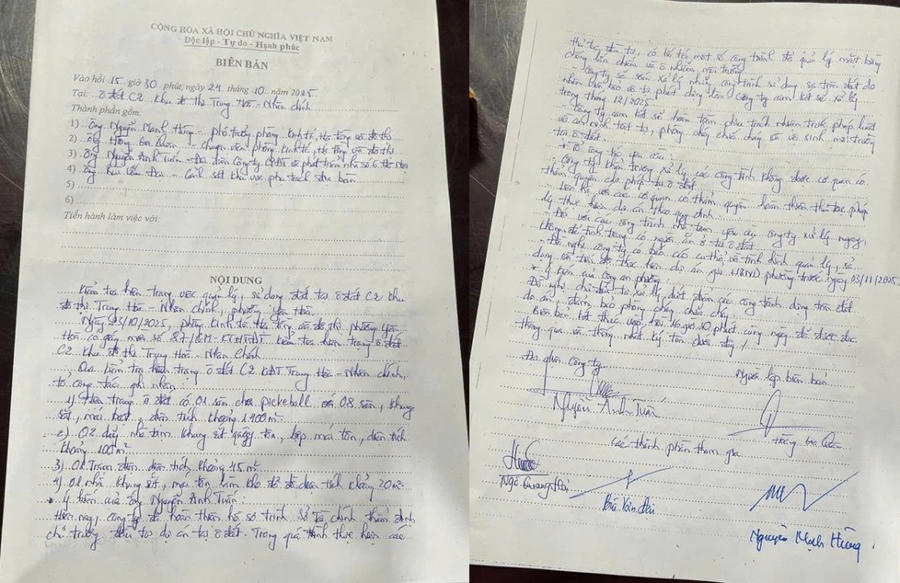 CỘNG HÒA XÃ HỘI CHỦ NGHĨA VIỆT NAM
Độc lập - Tự do - Hạnh phúc
BIÊN BẢN
Vào hồi 15 giờ 30 phút, ngày 24 tháng 10 năm 2025
Tại ô đất C2 Khu đô thị Trung Hòa - Nhân Chính
Thành phần gồm:
1) Ông Nguyễn Mạnh Hùng - phó trưởng phòng kinh tế, hạ tầng và đô thị
2) - chuyên viên phòng kinh tế, hạ tầng và đô thị
3) Ông Nguyễn Anh Tuấn - Đại diện Công ty và phát triển nhà số 6
4) Ông - Cảnh sát khu vực phụ trách địa bàn
5)
6)
Tiến hành làm việc với:
NỘI DUNG
Kiểm tra hiện trạng việc quản lý, sử dụng đất tại ô đất C2 khu
đô thị Trung Hòa - Nhân chính, phường Yên Hòa.
Ngày 23/10/2025, phòng kinh tế hạ tầng và đô thị phường Yên
Hòa có giấy mời số 87/GM-KTHTĐT kiểm tra hiện trạng ô đất
C2 khu đô thị Trung Hòa - Nhân Chính
Qua kiểm tra hiện trạng ô đất C2 KĐT Trung Hòa - Nhân chính,
tổ công tác ghi nhận:
1) Hiện trạng ô đất có 01 sân chơi pickeball 08 sân, khung
sắt, mái bạt, diện tích khoảng 1.400m²
2) 02 dãy nhà tạm khung sắt quây tôn, lợp mái tôn, diện tích
khoảng 100m²
3) 01 Trạm điện diện tích khoảng 45m²
4) 01 nhà khung sắt, mái tôn làm kho để đồ diện tích khoảng 20m²
* Ý kiến của ông Nguyễn Anh Tuấn:
Hiện nay, công ty đã hoàn thiện hồ sơ trình Sở Tài chính thẩm định
chủ trương đầu tư dự án tại ô đất. Trong quá trình thực hiện các
thủ tục đầu tư, có bố trí một số công trình để quản lý mặt bằng
chống lấn chiếm và ô nhiễm môi trường
- Công ty sẽ xử lý những công trình sử dụng sai trên đất do
Công ty cam kết sẽ xử lý
trong tháng 12/2025
Công ty cam kết sẽ hoàn toàn chịu trách nhiệm trước pháp luật
về an ninh trật tự, phòng cháy chữa cháy và vệ sinh môi trường
tại ô đất.
* Tổ công tác yêu cầu:
- Công ty khẩn trương xử lý các công trình không được cơ quan có
thẩm quyền cho phép tại ô đất.
- Liên hệ với các cơ quan có thẩm quyền hoàn thiện thủ tục pháp
lý thực hiện dự án theo quy định.
- Đối với các công trình nhà tạm yêu cầu công ty xử lý ngay,
không để tình trạng có người ăn ở tại ô đất.
- Đề nghị công ty có báo cáo cụ thể về tình hình quản lý, sử
dụng và tiến độ thực hiện dự án gửi UBND phường trước ngày 03/11/2025.
* Ý kiến của công an phường:
Đề nghị chủ đầu tư xử lý dứt điểm các công trình dùng trên đất
dự án, đảm bảo phòng cháy chữa cháy.
Biên bản kết thúc vào hồi 16 giờ 10 phút cùng ngày đã được đọc
thông qua và thống nhất ký tên dưới đây./.
Đại diện công ty
Người lập biên bản
Nguyễn Anh Tuấn
Các thành phần tham gia
Nguyễn Mạnh Hùng